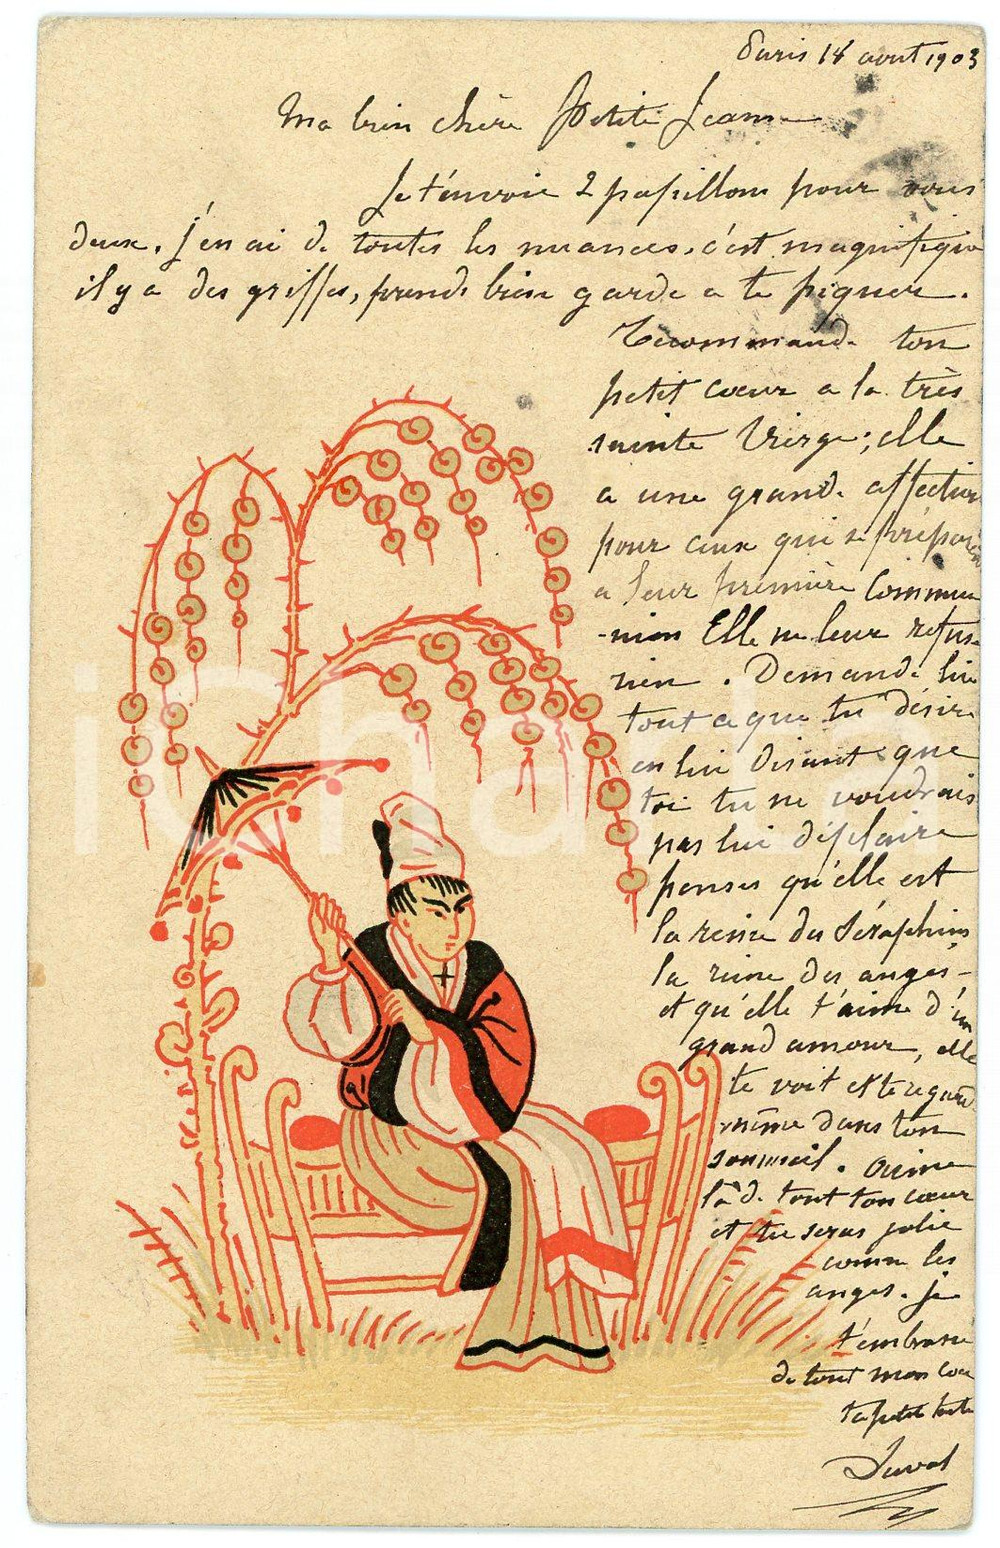 Paris 18 aout 1903
Ma bien chère Petite Jeanne
Je t'envoie 2 papillons pour vous
deux. j'en ai de toutes les nuances. c'est magnifique
il y a des griffes, prends bien garde a te piquer.
Recommande ton
petit cœur a la très
sainte Vierge; elle
a une grande affection
pour ceux qui se préparent
a leur première commu
-nion Elle ne leur refuse
rien. Demande lui
tout ce que tu désire
en lui disant que
toi tu ne voudrais
pas lui déplaire
penses qu'elle est
la reine des Séraphins
la reine des anges -
et qu'elle t'aime d'un
grand amour, elle
te voit et te regarde
même dans ton
sommeil. aime
là de tout ton cœur
et tu seras jolie
comme les
anges. je
t'embrasse
de tout mon cœur
ta petite tante
Duval
iChalta